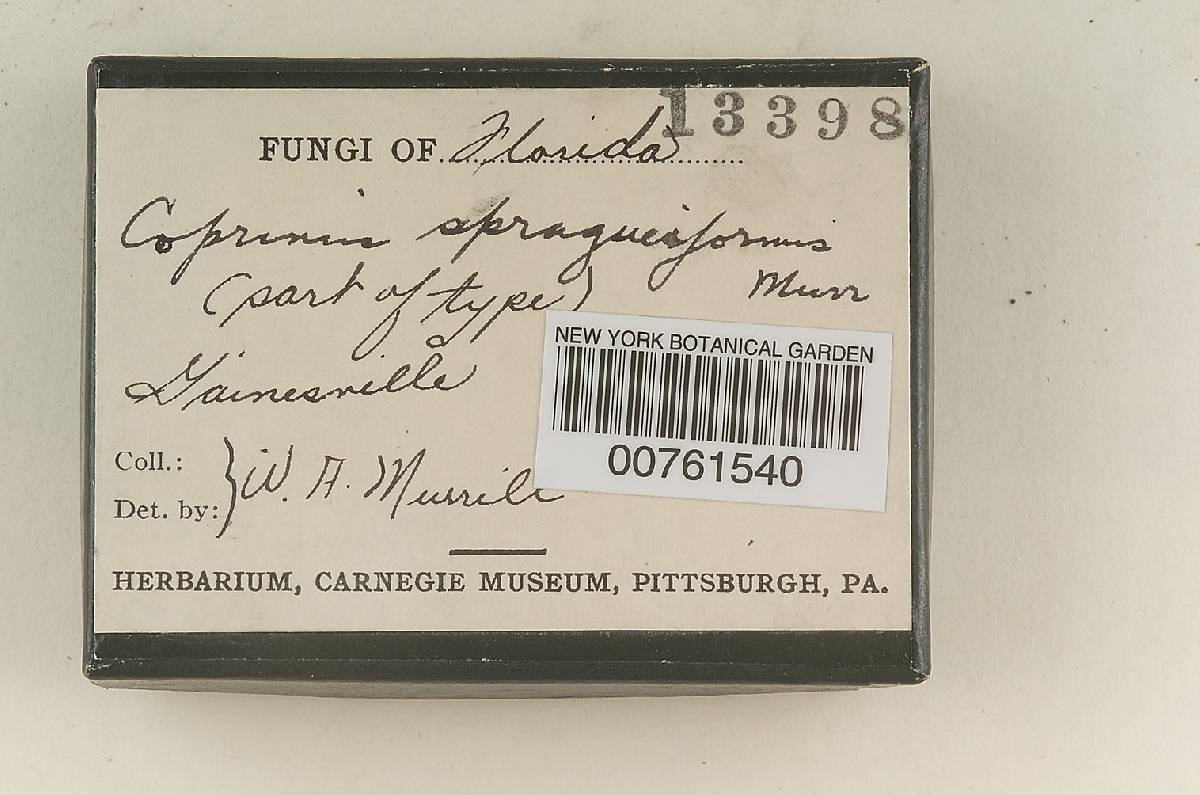 13398
FUNGI OF Florida
Coprinus spragueiformis
(part of type) Murr
Gainesville
NEW YORK BOTANICAL GARDEN
00761540
Coll.:
Det. by: } W. A. Murrill
HERBARIUM, CARNEGIE MUSEUM, PITTSBURGH, PA.